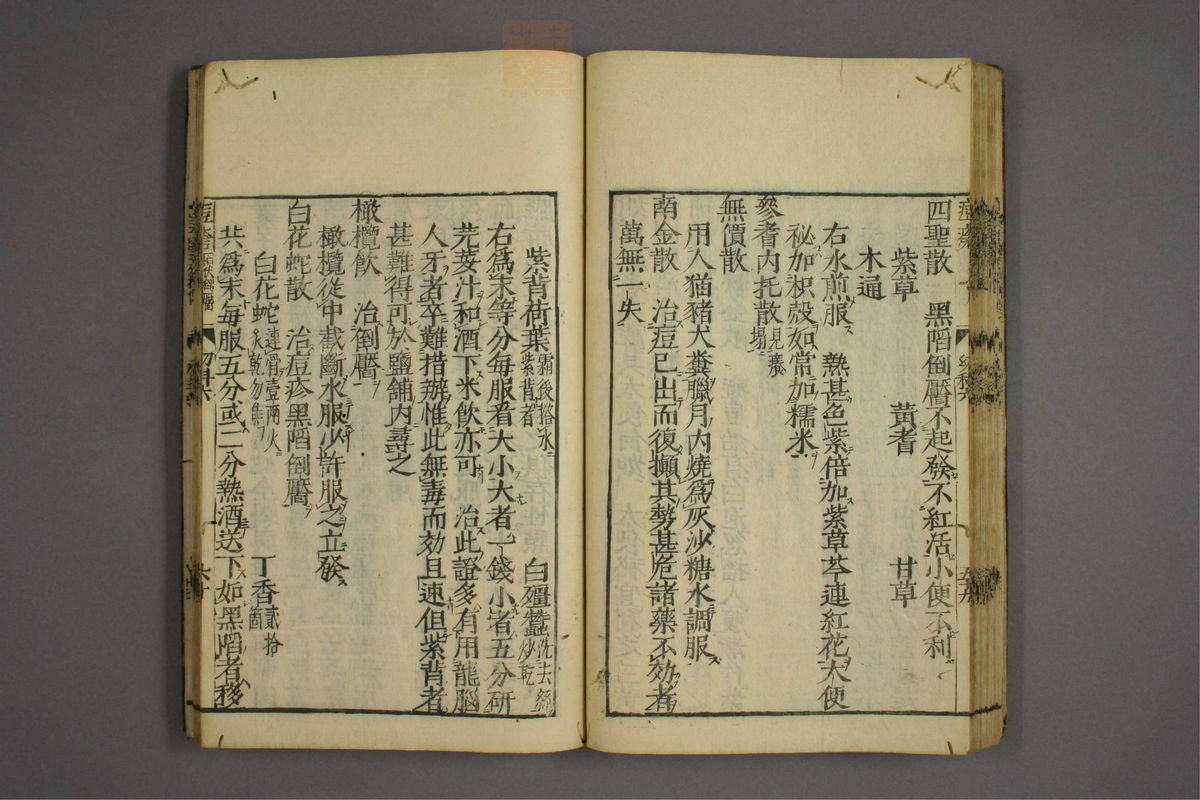 四聖散 黑陷倒黶不起發不紅活小便不利
紫草 黃耆 甘草
木通
右水煎服 熱甚色紫倍加紫草芩連紅花大便
秘加枳殼如常加糯米
參耆内托散 見癢塌
無價散
用人猫豬犬糞臘月内燒為灰沙糖水調服
南金散 治痘已出而復攧其勢甚危諸藥不効者
萬無一失
紫背荷葉 霜後搭水紫背者 白殭蠶 洗去絲炒乾
右為末等分每服看大小大者一錢小者五分研
芫荽汁和酒下米飲亦可 治此證多有用龍腦
人牙者卒難措辦惟此無毒而効且速但紫背者
甚難得可於鹽舖内尋之
橄欖飲 治倒黶
橄欖從中截斷水服少許服之立發
白花蛇散 治痘疹黑陷倒黶
白花蛇 連骨壹兩火炙乾勿焦 丁香 貳拾箇
共為末每服五分或二分熱酒送下如黑陷者移